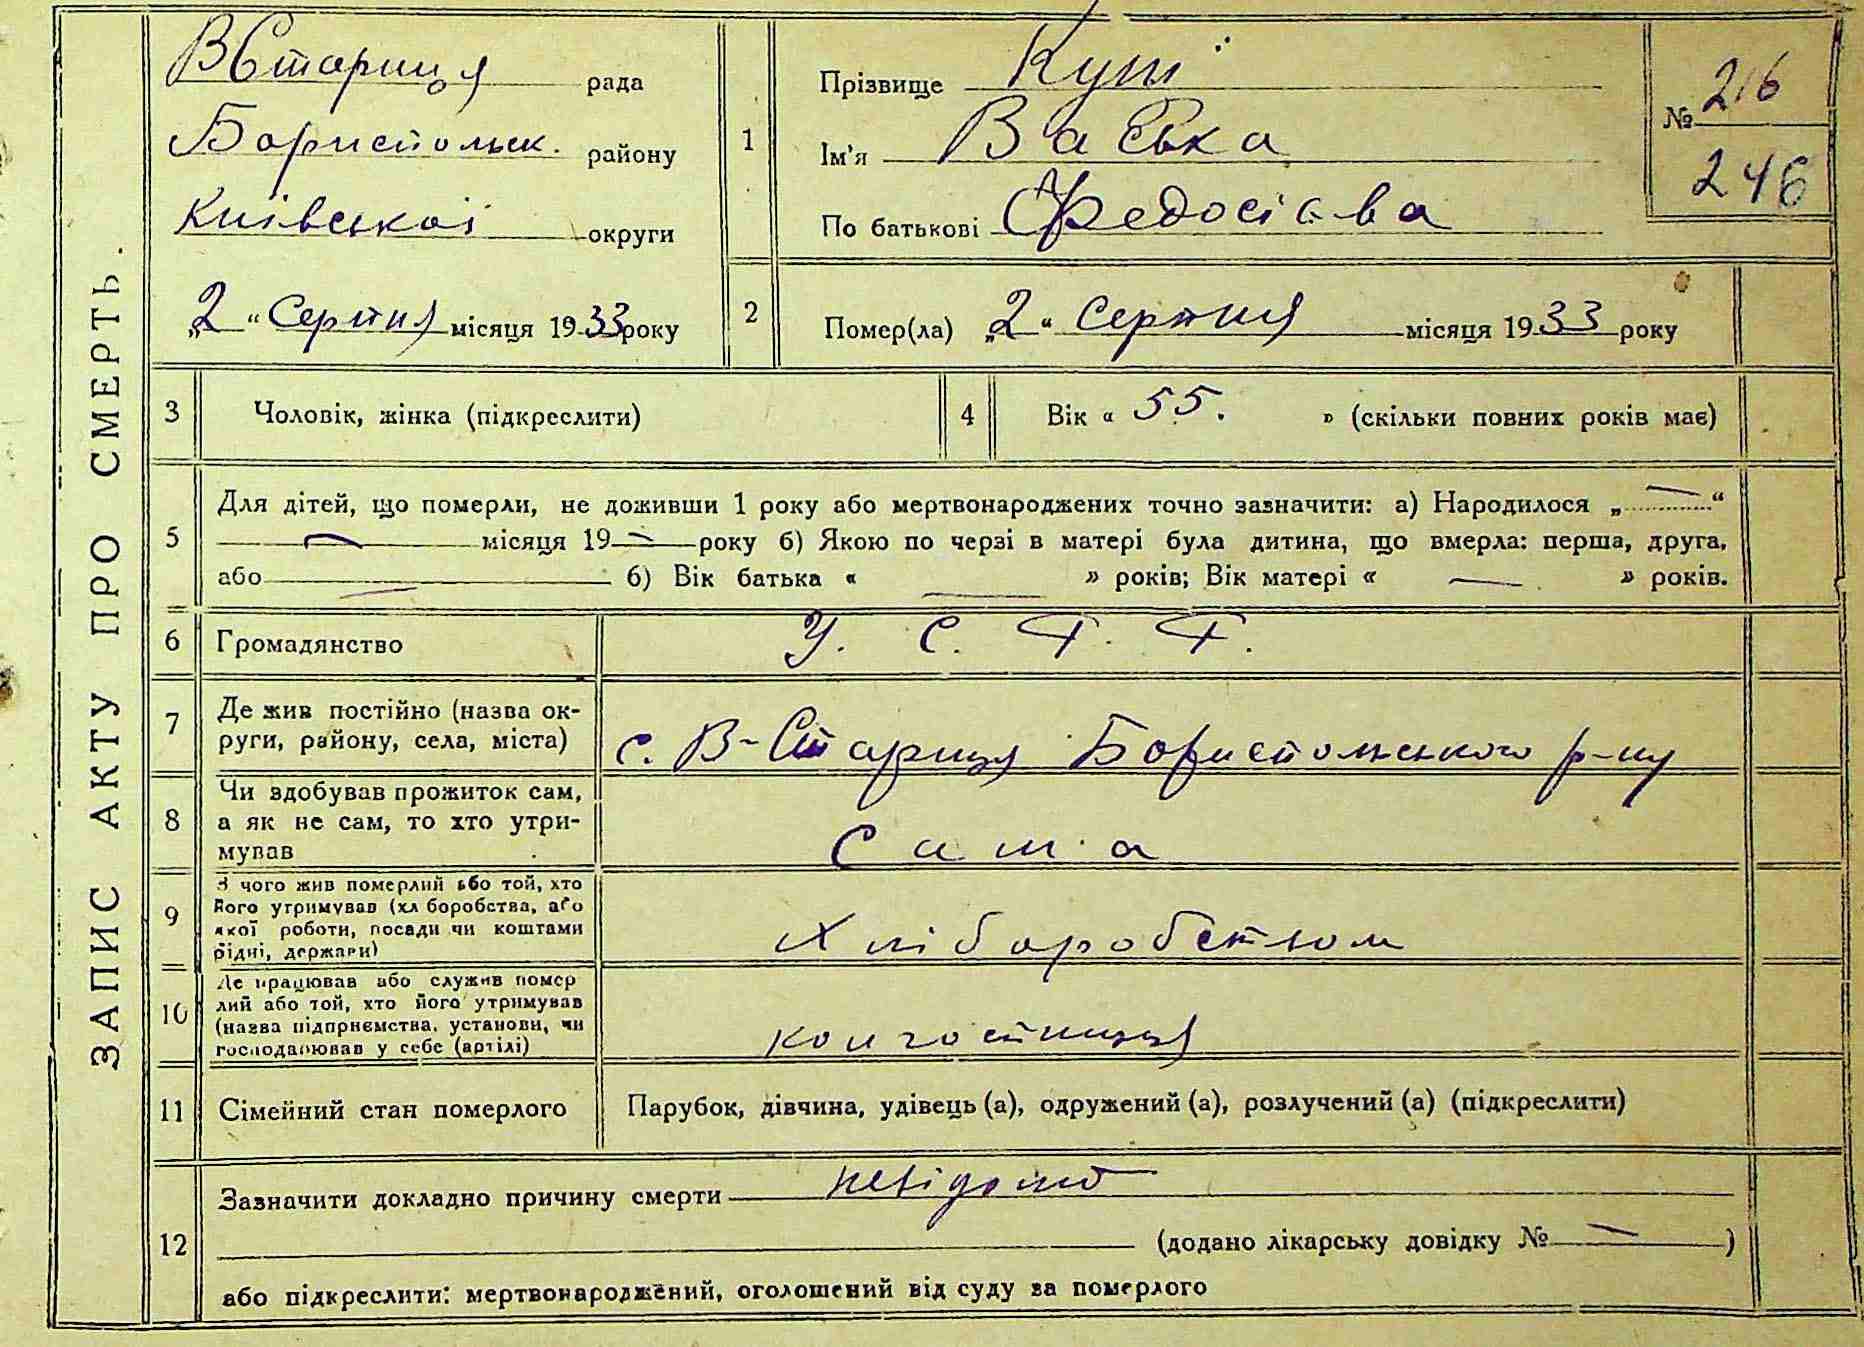 ЗАПИС АКТУ ПРО СМЕРТЬ.
ВСтариця рада
Бориспольск. району
Київської округи
„2 “ Серпня місяця 1933 року
1
Прізвище
Ім'я Васька
По батькові Федосієва
№ 216
246
2
Помер(ла) „2 “ Серпня місяця 1933 року
3 Чоловік, жінка (підкреслити)
4 Вік « 55. » (скільки повних років має)
5
Для дітей, що померли, не доживши 1 року або мертвонароджених точно зазначити: а) Народилося „ — “
— місяця 19 — року б) Якою по черзі в матері була дитина, що вмерла: перша, друга,
або — б) Вік батька « — » років; Вік матері « — » років.
6 Громадянство У. С. Р. Р.
7
Де жив постійно (назва ок-
руги, району, села, міста) с. В-Стариця Бориспольського р-ну
8
Чи здобував прожиток сам,
а як не сам, то хто утри-
мував Сама
9
З чого жив померлий або той, хто
його утримував (хліборобства, або
якої роботи, посади чи коштами
рідні, держави) Хліборобством
10
Де працював або служив помер
лий або той, хто його утримував
(назва підприємства, установи, чи
господарював у себе (артілі) колгостниця
11 Сімейний стан померлого Парубок, дівчина, удівець (а), одружений (а), розлучений (а) (підкреслити)
12
Зазначити докладно причину смерти невідомо
(додано лікарську довідку № — )
або підкреслити: мертвонароджений, оголошений від суду за померлого